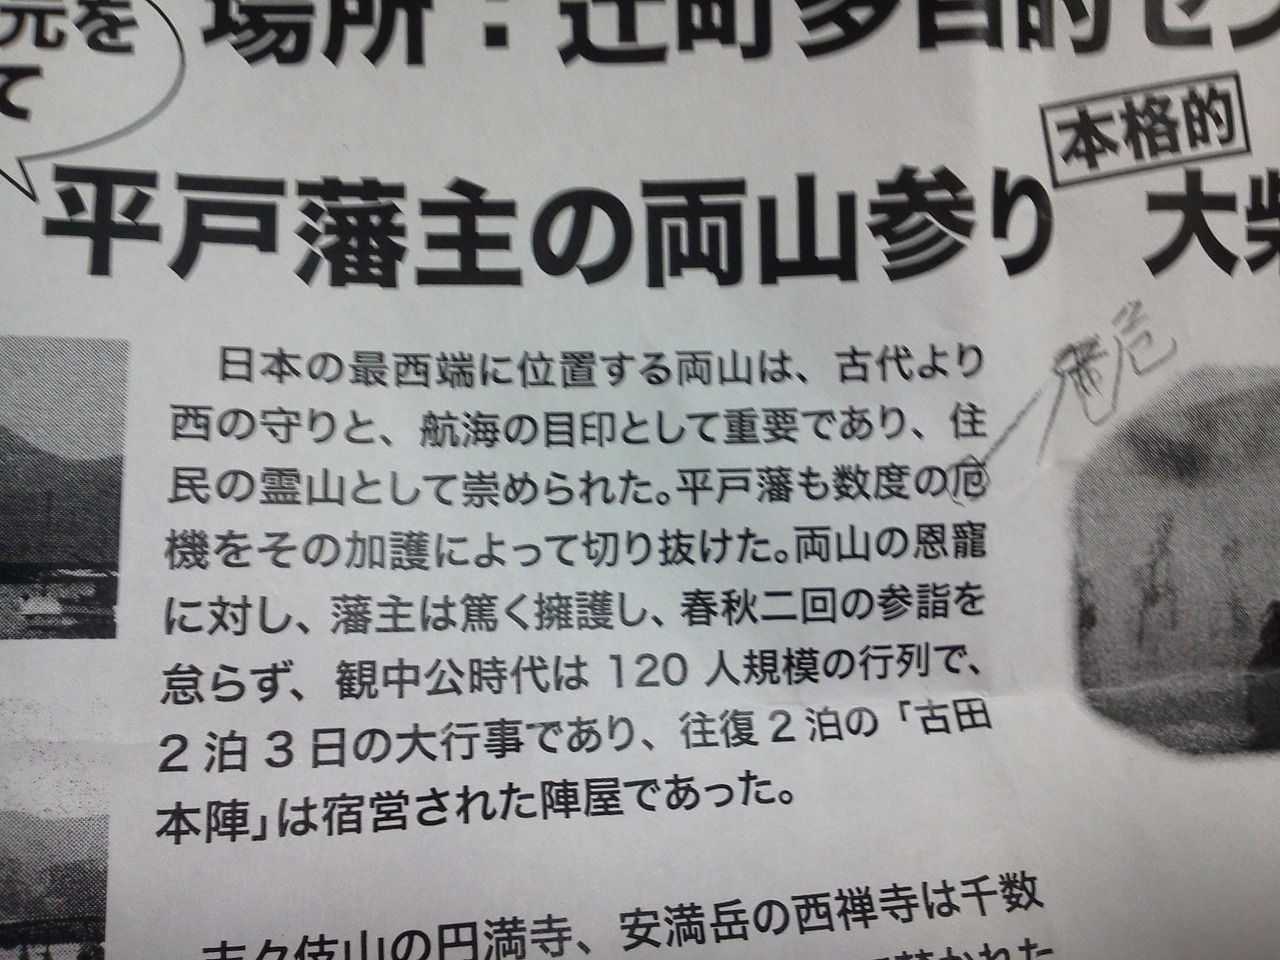 元を
て
場所：辻町多目的セン
本格的
平戸藩主の両山参り　大柴
日本の最西端に位置する両山は、古代より
西の守りと、航海の目印として重要であり、住
民の霊山として崇められた。平戸藩も数度の厄
機をその加護によって切り抜けた。両山の恩寵
に対し、藩主は篤く擁護し、春秋二回の参詣を
怠らず、観中公時代は 120 人規模の行列で、
2 泊 3 日の大行事であり、往復 2 泊の「古田
本陣」は宿営された陣屋であった。
危
志々伎山の円満寺、安満岳の西禅寺は千数